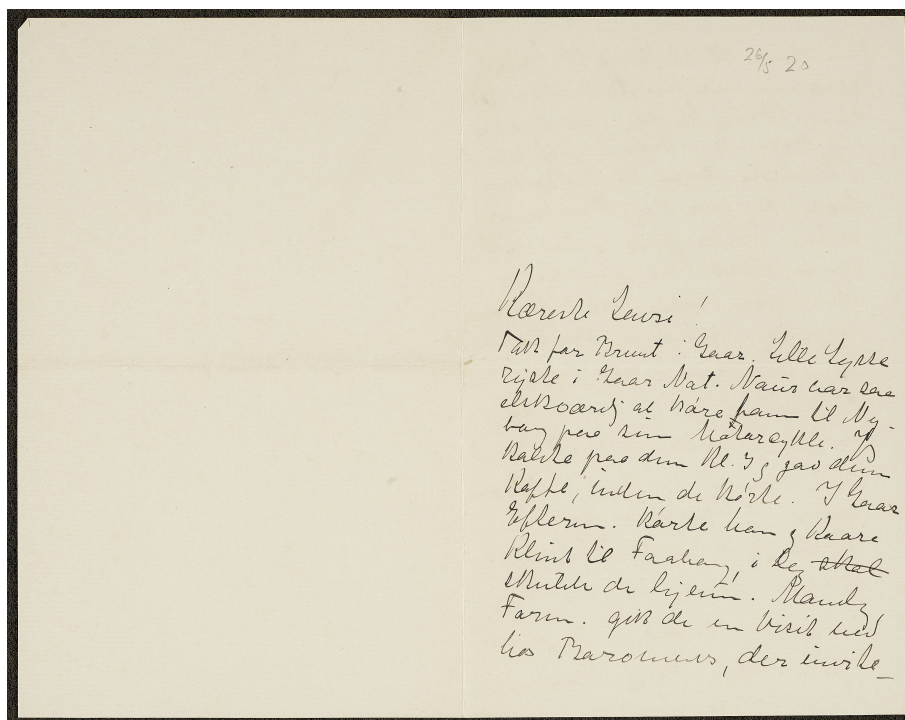 26/5 20
Kæreste Lewsi!
Tak for Brevet i Gaar. Lille Lysse
rejste i Gaar Nat. Naur var saa
elskværdig at køre ham til Ny-
borg paa sin Motorcykle. Jeg
kaldte paa dem Kl. 3 og gav dem
Kaffe, inden de kørte. I Gaar
Efterm. kørte han og Kaare
Klint til Faaborg, i Dag skal
skulde de hjem. Mandag
Form. gik de en Visit ned
hos Baronens, der invite-